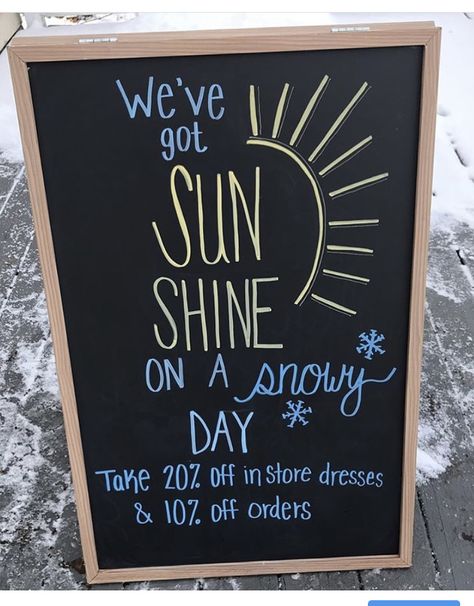 We've
got
SUN
SHINE
ON A snowy
DAY
Take 20% off in store dresses
& 10% off orders